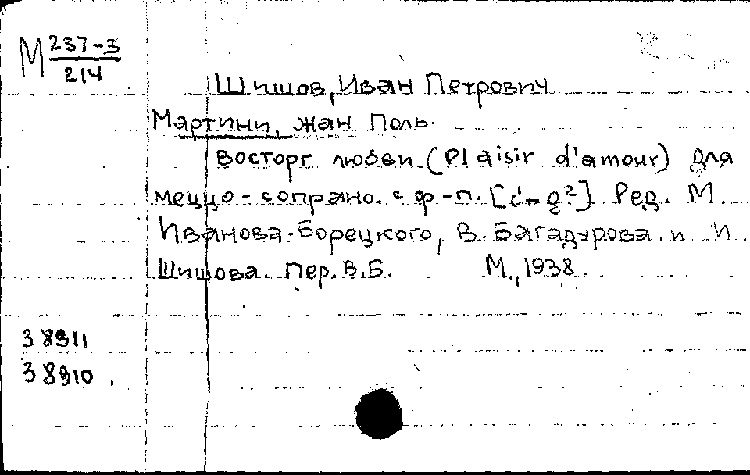 М 237-3
214
Шишов, Иван Петрович
Мартини, Жан Поль.
Восторг любви. (Plaisir d'amour) Для
меццо-сопрано с ф-п. [c¹-g²]. Ред. М.
Иванова-Борецкого, В. Багадурова и И.
Шишова. Пер. В.Б. М., 1938.
38911
38910